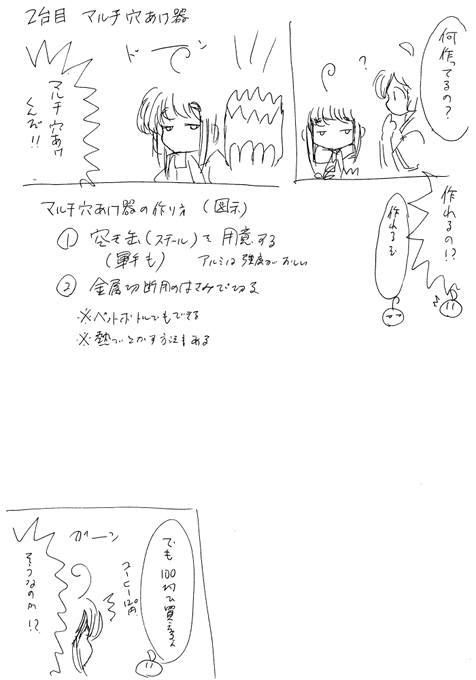 2台目 マルチ穴あけ器
何作ってるの?
?
ドーン
マルチ穴あけ
くんだ!!
作れるの!?
作れるも
マルチ穴あけ器の作り方 (図示)
① 空き缶(スチール)を用意する
(軍手も) アルミは強度があやしい
② 金属切断用のはさみで切る
※ペットボトルでもできる
※熱でとかす方法もある
でも100均で買える
コーヒー120円
ガーン
そうなのか!?